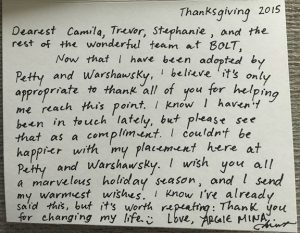 Thanksgiving 2015
Dearest Camila, Trevor, Stephanie, and the
rest of the wonderful team at BOLT,
Now that I have been adopted by
Petty and Warshawsky, I believe it's only
appropriate to thank all of you for helping
me reach this point. I know I haven't
been in touch lately, but please see
that as a compliment. I couldn't be
happier with my placement here at
Petty and Warshawsky. I wish you all
a marvelous holiday season, and I send
my warmest wishes. I know I've already
said this, but it's worth repeating: Thank you
for changing my life. :) LOVE, ARGIE MINA